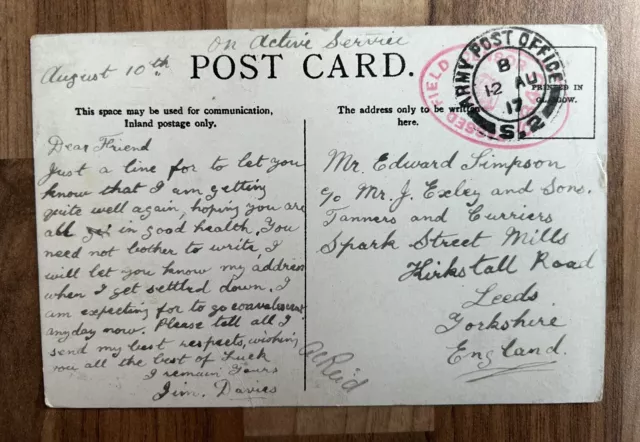 On Active Service
August 10th
POST CARD.
ARMY POST OFFICE
B
12 AU
17
S.2
FIELD
PRINTED IN
GLASGOW.
This space may be used for communication,
Inland postage only.
The address only to be written
here.
Dear Friend
Just a line for to let you
know that I am getting
quite well again, hoping you are
all in good health, You
need not bother to write, I
will let you know my address
when I get settled down. I
am expecting for to go
anyday now. Please tell all I
send my best respects, wishing
you all the best of luck
I remain Yours
Jim. Davies
Mr. Edward Simpson
c/o Mr. J. Exley and Sons.
Tanners and Curriers
Spark Street Mills
Kirkstall Road
Leeds.
Yorkshire
England.
Reid